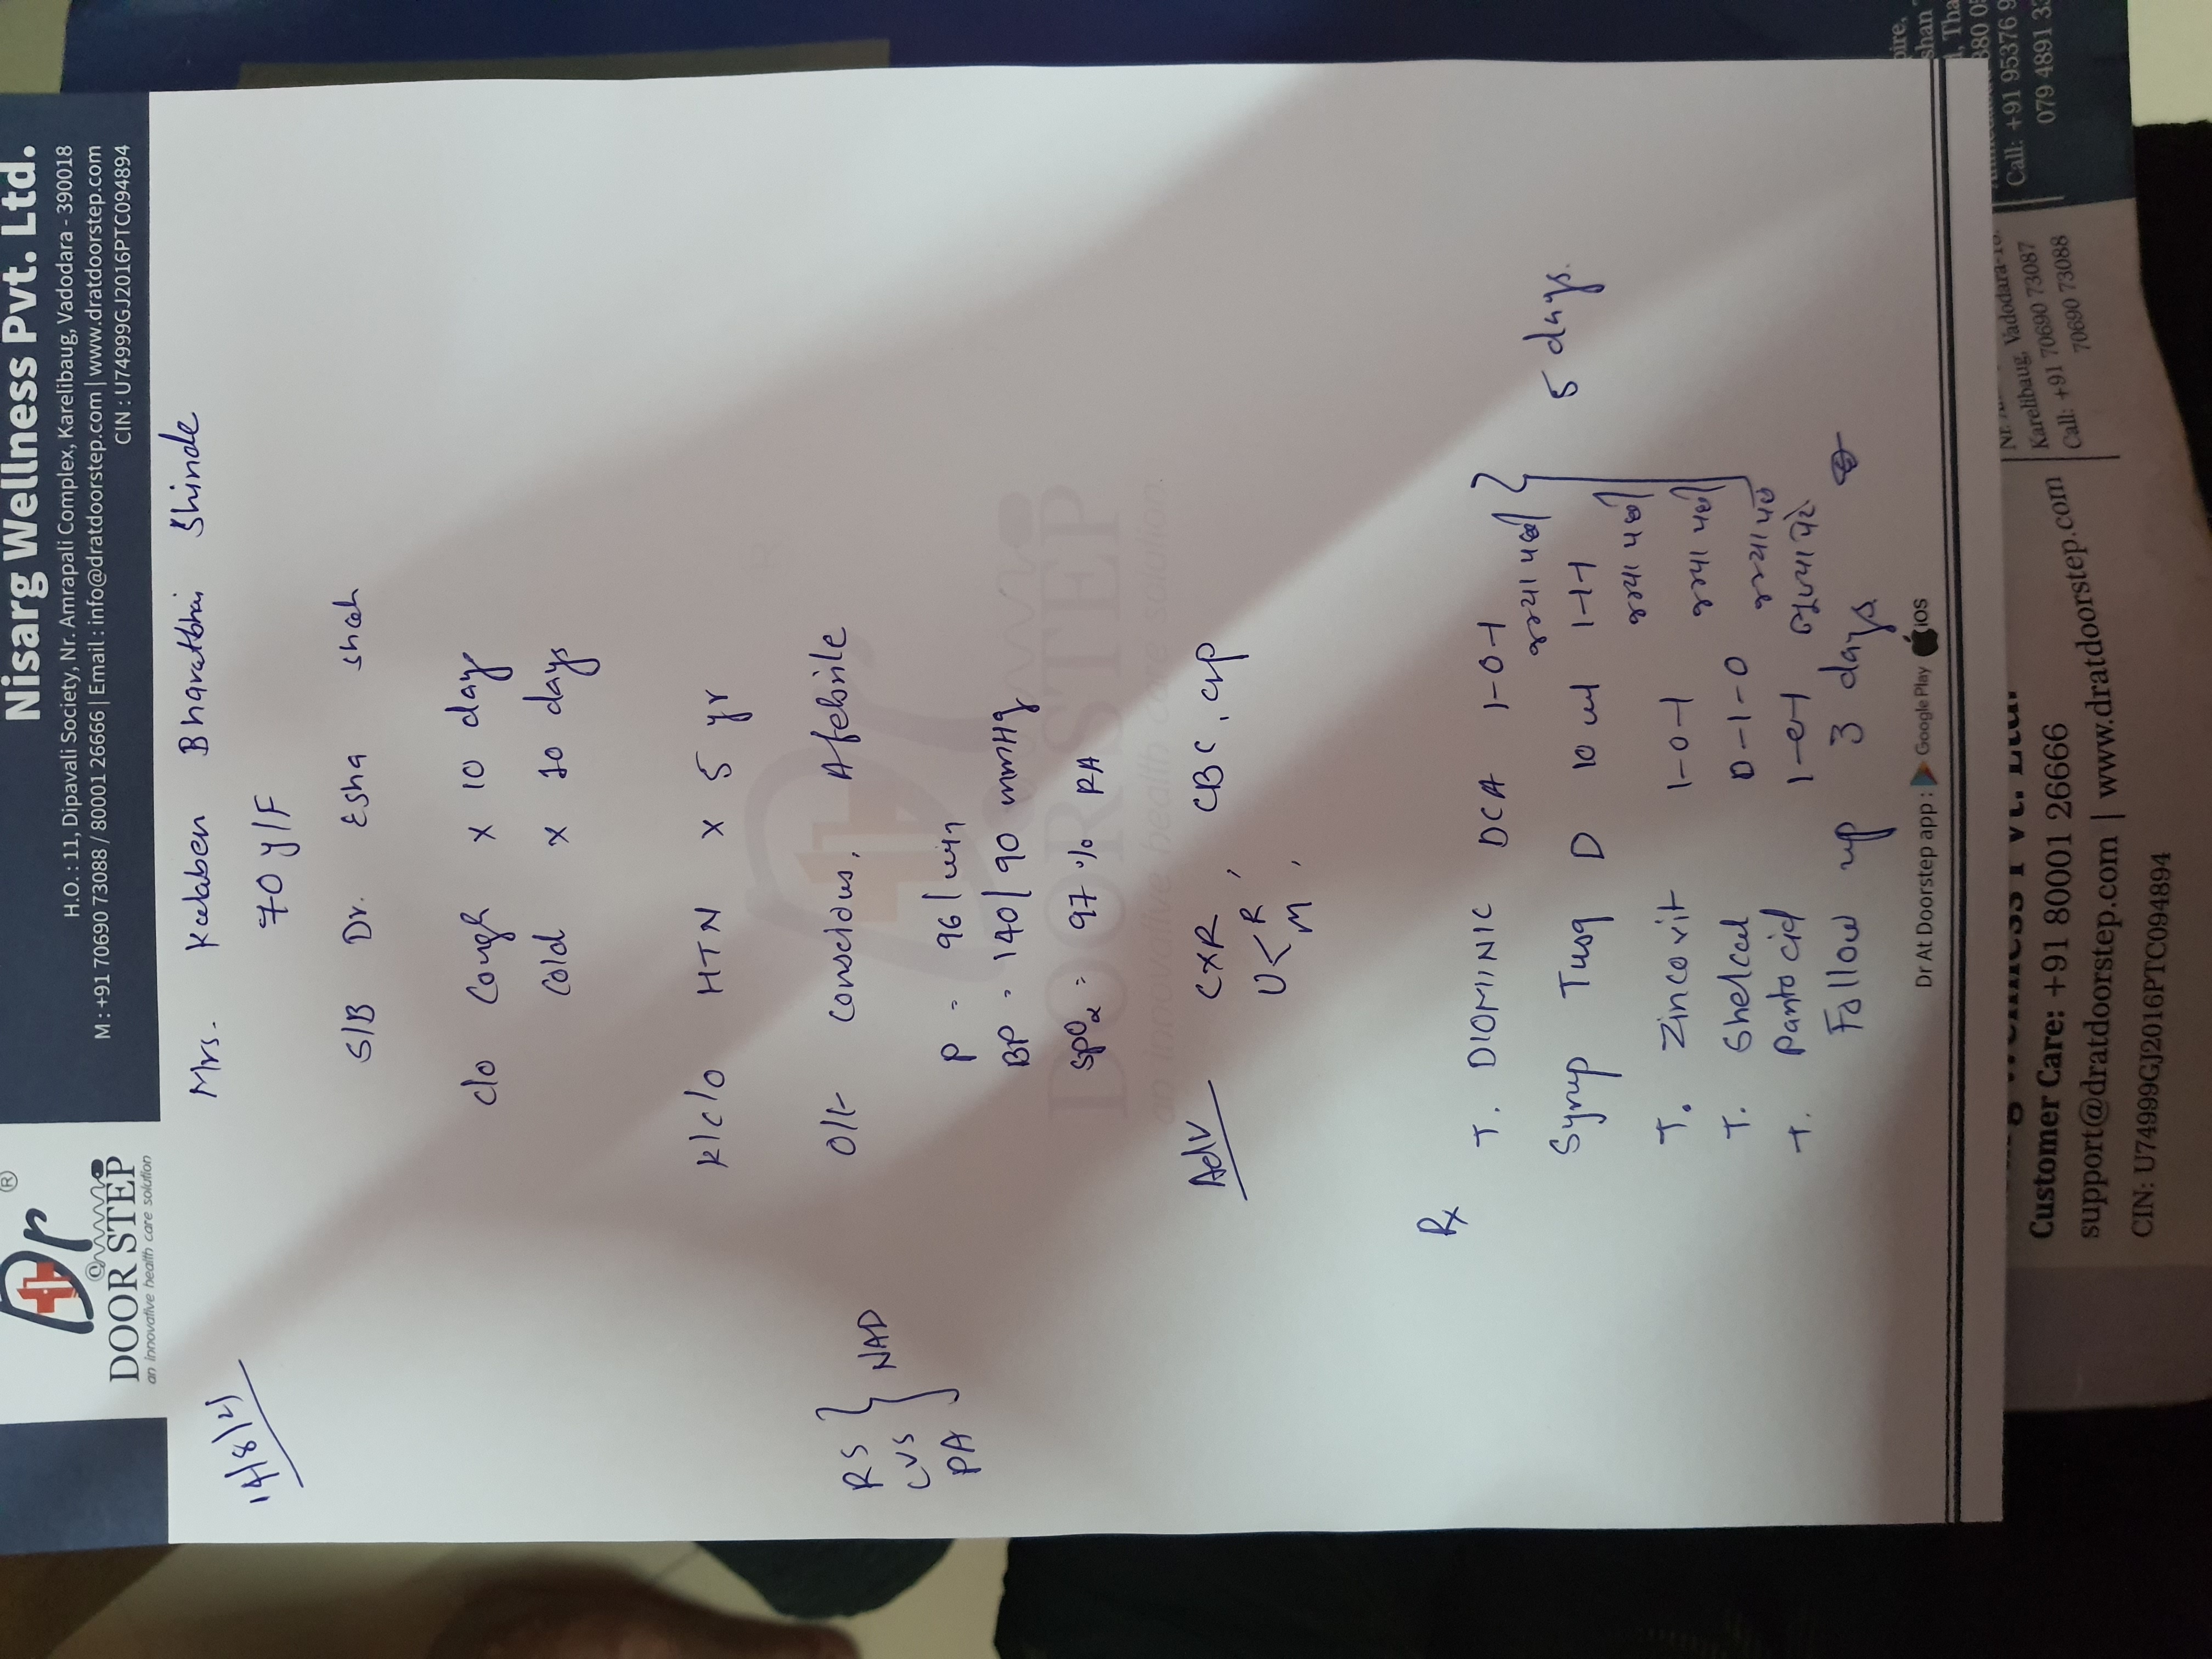 Dr
®
DOOR STEP
an innovative health care solution
Nisarg Wellness Pvt. Ltd.
H.O. : 11, Dipavali Society, Nr. Amrapali Complex, Karelibaug, Vadodara - 390018
M : +91 70690 73088 / 80001 26666 | Email : info@dratdoorstep.com | www.dratdoorstep.com
CIN : U74999GJ2016PTC094894
14/8/21
Mrs. Kalaben Bharatbhai Shinde
70 y/F
S/B Dr. Esha Shah
c/o Cough x 10 days
Cold x 10 days
k/c/o HTN x 5 yr
O/E Conscious, Afebrile
RS
CVS
PA
NAD
P = 96/min
BP = 140/90 mmHg
SpO2 = 97 % RA
Adv CXR, CBC, CRP
U< R
M,
Rx
T. DIOMINIC DCA 1-0-1
જમ્યા પછી
Syrup Tusq D 10 ml 1-1-1
જમ્યા પછી
T. Zincovit 1-0-1
જમ્યા પછી
T. Shelcal 0-1-0
જમ્યા પછી
T. Pantocid 1-0-1 ભૂખ્યા પેટે
5 days.
Follow up 3 days
Dr At Doorstep app : Google Play iOS
Customer Care: +91 80001 26666
support@dratdoorstep.com | www.dratdoorstep.com
CIN: U74999GJ2016PTC094894
Karelibaug, Vadodara-18.
Call: +91 70690 73087
70690 73088
Call: +91 95376 9
079 4891 33